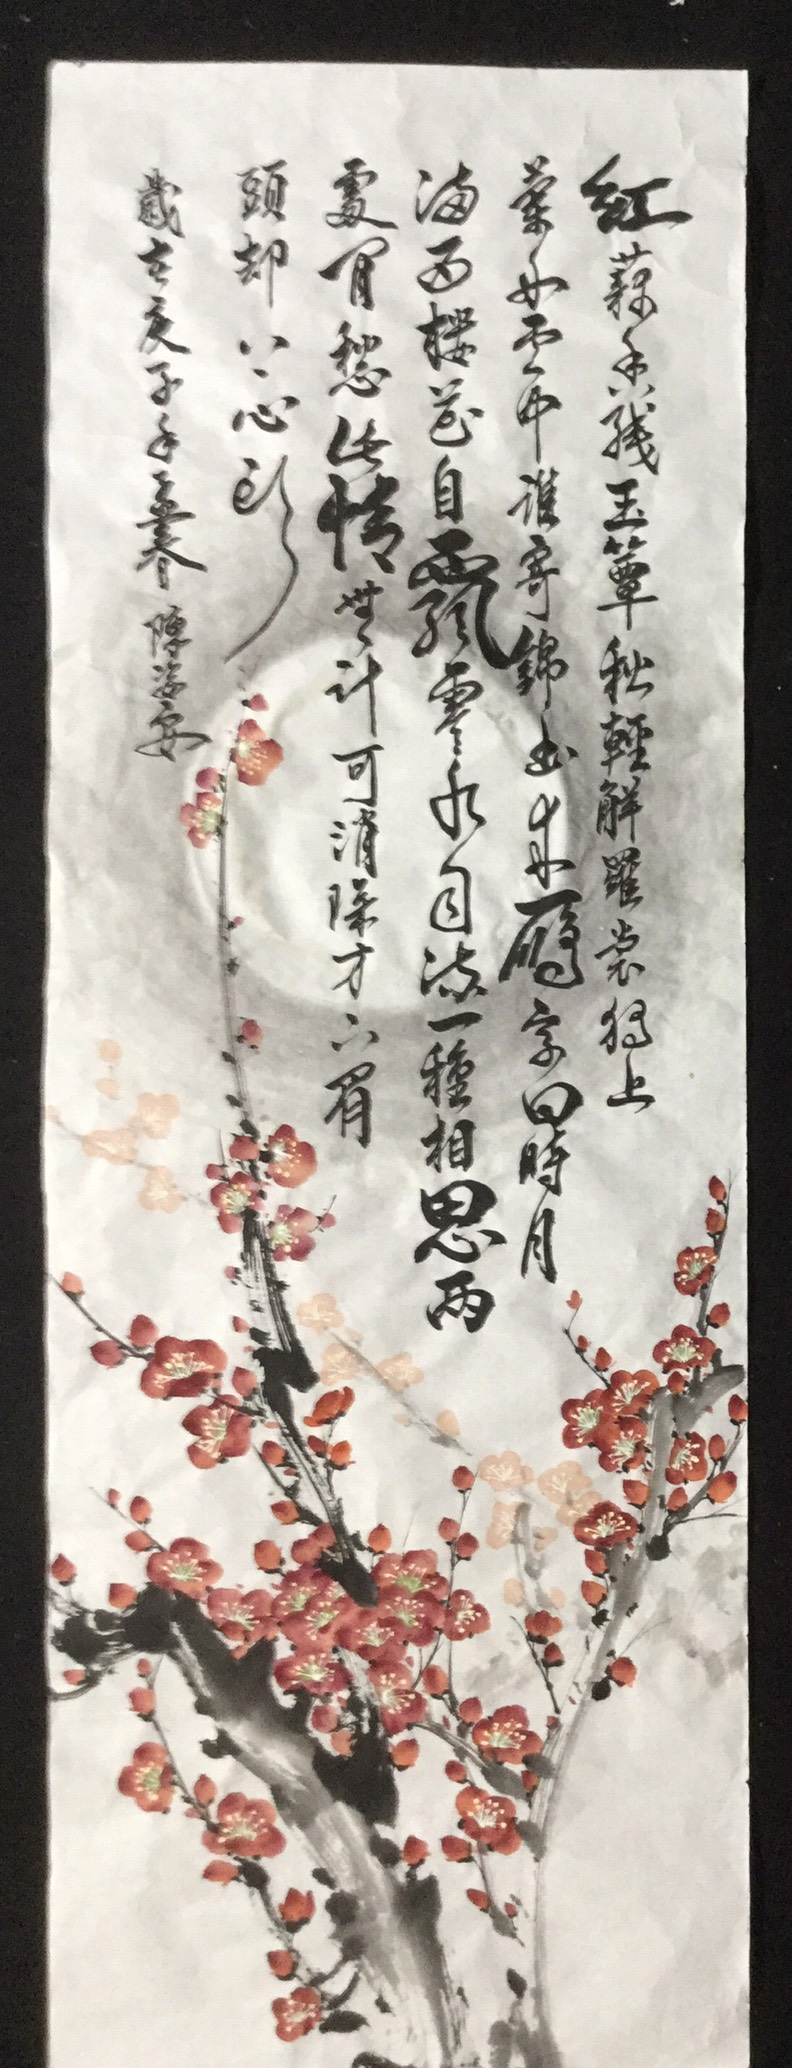 紅藕香殘玉簟秋輕解羅裳獨上
蘭舟雲中誰寄錦書來雁字回時月
滿西樓花自飄零水自流一種相思兩
處閒愁此情無計可消除才下眉
頭却上心頭
歲在庚子年孟春 陳姿安